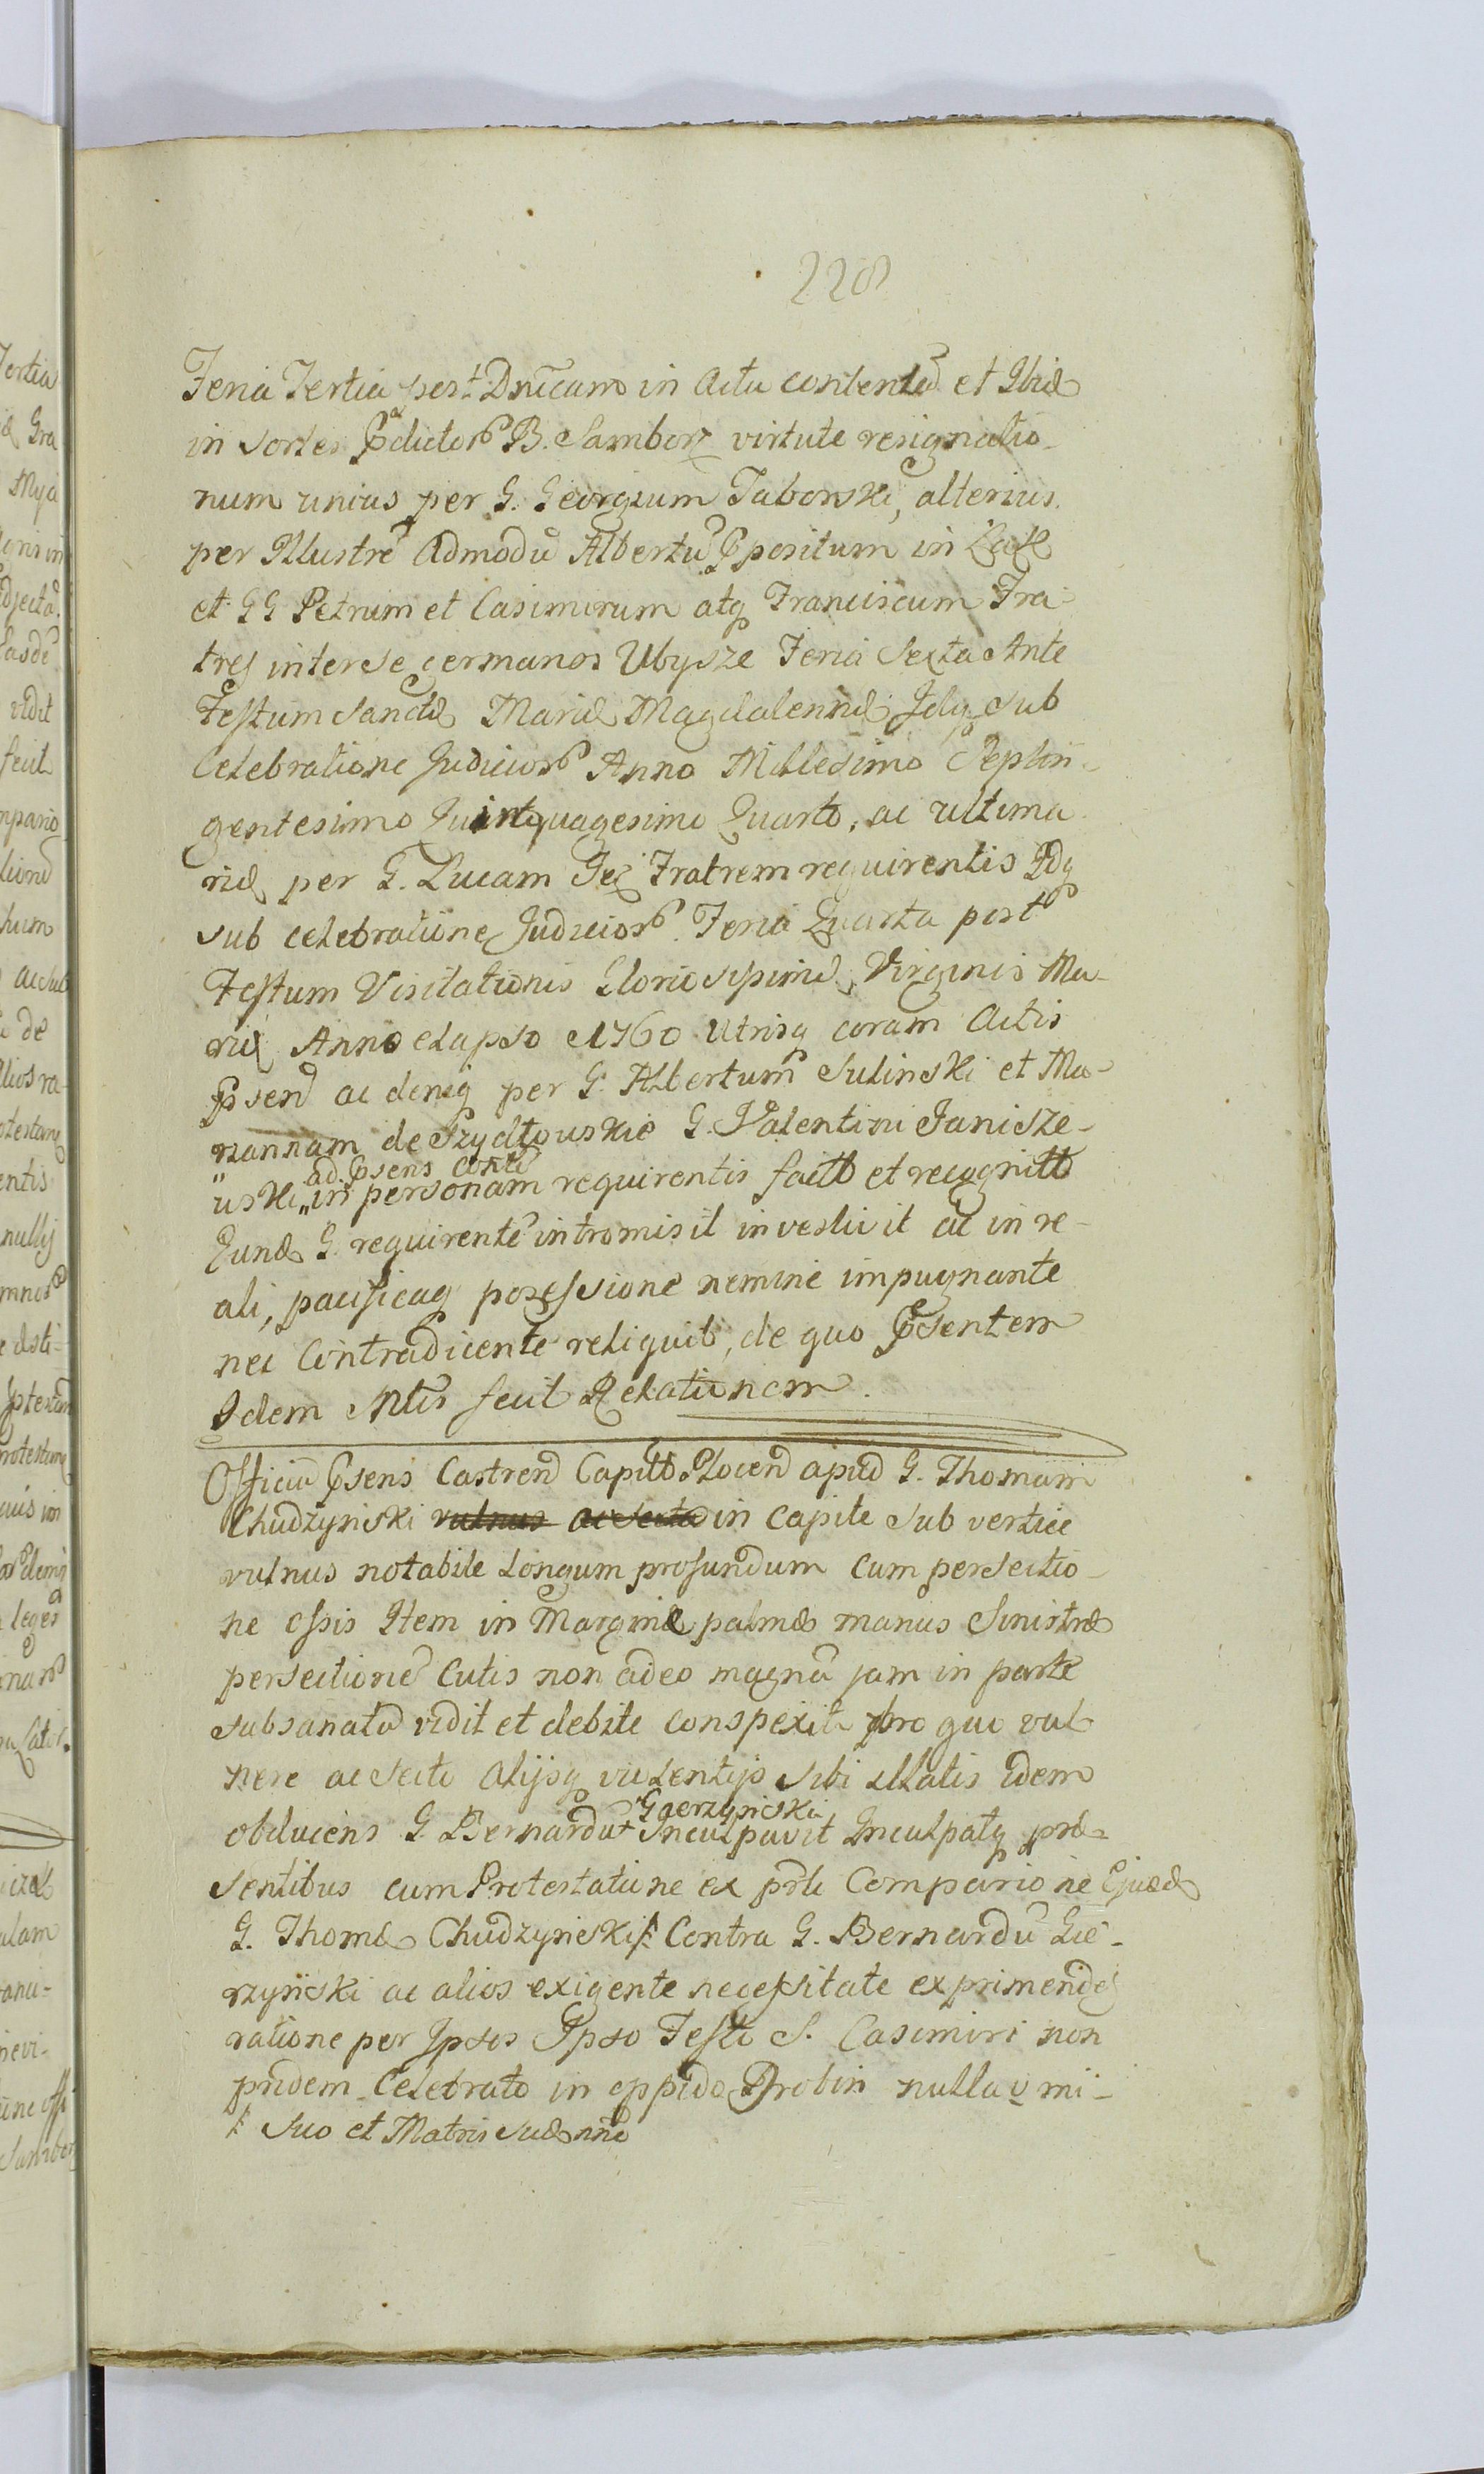 228
Feria Tertia post Dnĩcam in Actu contentã et Ibid
in sortes Pdictor B. Samborz virtute resignatio-
num unius per G. Georgium Taborski, alterius
per Illustrẽ Admodũ Albertũ Ppositum in
et GG Petrum et Casimirum atq Franciscum Fra-
tres inter se germanos Ubysze Feria Sexta Ante
Festum Sanctæ Mariæ Magdalennæ Idq Sub
Celebratione Judicior Anno Millesimo Septin-
gentesimo Quinquagesimo Quarto, ac ultima
riæ per G. Lucam Fratrem requirentis Idq
sub celebratione Judicior Feria Quarta post
Festum Visitationis Gloriosissimæ Virginis Ma-
riæ Anno elapso 1760 Utrisq coram Actis
Psen ac deniq per G. Albertum Sulinski et Ma-
riannam de Szydłouskie G. Valentini Janisze-
ad Psens Contẽ
uski „ in personam requirentis fact et recognit
Eund G. requirentẽ intromisit investivit ac in re-
ali, pacificaq possessione nemine impugnante
nec Contradicente reliquit, de quo Psentem
Idem Mlis fecit Relationem.
Officiũ Psens Castren Capit Plocen apud G. Thomam
Chudzynski vulnus ac secta in Capite sub vertice
vulnus notabile longum profundum cum persectio-
ne ossis Item in Margine palmæ manus Sinistræ
persectionẽ Cutis non adeo magnã jam in parte
subsanatã vidit et debite conspexit pro quo vul
nere ac secto Alijsq violentijs sibi illatis idem
Gierzynski
obducens G. Bernardũ Inculpavit Inculpatq præ-
sentibus cum Protestatione ex prt Comparione Ejusd
G. Thomæ Chudzynski /: Contra G. Bernardũ Gie-
rzynski ac alios exigente necessitate exprimend
ratione per Ipsos Ipso Festo S. Casimiri non
pridem Celebrato in oppido Drobin nulla mi-
/: Suo et Matris suæ nñe